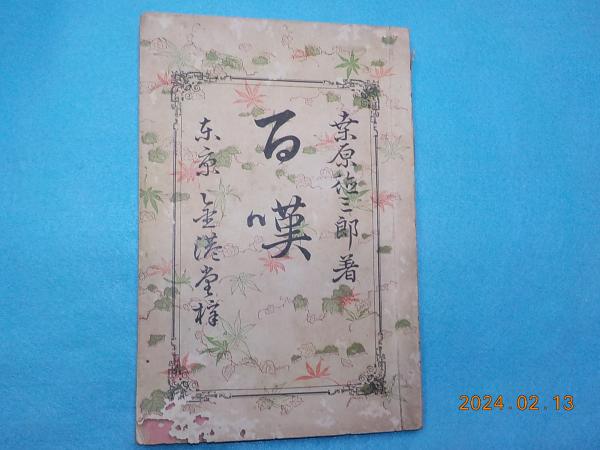 桑原徳三郎著
百嘆
東京金港堂梓
2024.02.13